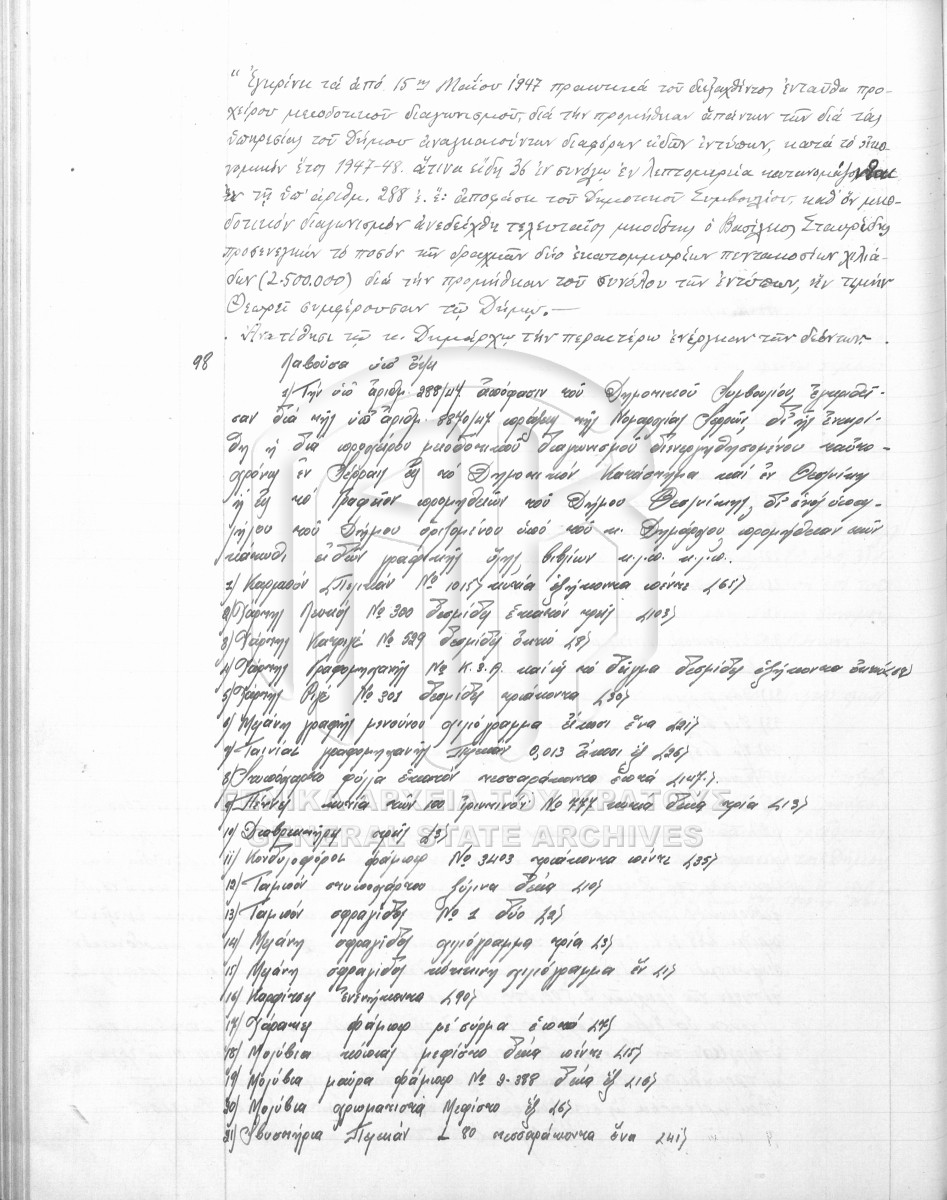 " Ἐγκρίνει τά ἀπό 15ης Μαΐου 1947 πρακτικά τοῦ διεξαχθέντος ἐνταῦθα προ-
χείρου μειοδοτικοῦ διαγωνισμοῦ, διά τήν προμήθειαν ἁπάντων τῶν διά τάς
ὑπηρεσίας τοῦ Δήμου ἀναγκαιούντων διαφόρων εἰδῶν ἐντύπων, κατά τό οἰκο-
νομικόν ἔτος 1947-48. ἅτινα εἴδη 36 ἐν συνόλῳ ἐν λεπτομερείᾳ κατονομάζονται
ἐν τῇ ὑπ' ἀριθμ. 288 ἐ. ἔ. ἀποφάσει τοῦ Δημοτικοῦ Συμβουλίου, καθ' ὅν μειο-
δοτικόν διαγωνισμόν ἀνεδείχθη τελευταῖος μειοδότης ὁ Βασίλειος Σταυρίδης
προσενεγκών τό ποσόν τῶν δραχμῶν δύο ἑκατομμυρίων πεντακοσίων χιλιά-
δων (2.500.000) διά τήν προμήθειαν τοῦ συνόλου τῶν ἐντύπων, ἥν τιμήν
θεωρεῖ συμφέρουσαν τῷ Δήμῳ.—
Ἀνατίθησι τῷ κ. Δημάρχῳ τήν περαιτέρω ἐνέργειαν τῶν δεόντων.
98 Λαβοῦσα ὑπ' ὄψη
1) Τήν ὑπ' ἀριθμ. 288/47 ἀπόφασιν τοῦ Δημοτικοῦ Συμβουλίου, ἐγκριθεῖ-
σαν διά τῆς ὑπ' ἀριθμ. 8870/47 πράξεως τῆς Νομαρχίας Σερρῶν, δι' ἧς ἐνεκρί-
θη ἡ διά προχείρου μειοδοτικοῦ διαγωνισμοῦ διενεργηθησομένου ταὐτο-
χρόνως ἐν Σέρραις εἰς τό Δημοτικόν Κατάστημα καί ἐν Θεσ/νίκῃ
ἤ εἰς τό Γραφεῖον προμηθειῶν τοῦ Δήμου Θεσ/νίκης, δι' ἑνός ὑπαλ-
λήλου τοῦ Δήμου ὁριζομένου ὑπό τοῦ κ. Δημάρχου προμήθειαν τῶν
κάτωθι εἰδῶν γραφικῆς ὕλης βιβλίων κ.λ.π. κ.λ.π.
1) Καρμπόν Πελικάν No 1015 κυτία ἑξήκοντα πέντε (65)
2) Χάρτης Λευκός No 300 δεσμίδες ἑκατόν τρεῖς (103)
3) Χάρτης Κατριγέ No 529 δεσμίδες ὀκτώ (8)
4) Χάρτης Γραφομηχανῆς No Κ.Β.Α. δεσμίδες ἑξήκοντα ὀκτώ
5) Χάρτης Ριγέ No 301 δεσμίδες τριάκοντα (30)
6) Μελάνη γραφῆς χιλιόγραμμα εἴκοσι ἕνα (21)
7) Ταινίαι γραφομηχανῆς Πελικάν 0,013 εἴκοσι ἕξ (26)
8) Στυπόχαρτο φύλλα ἑκατόν τεσσαράκοντα ἑπτά (147).
9) Πέννες κυτία τῶν 100 No 777 κυτία δέκα τρία (13)
10) Διαβρεκτῆρες τρεῖς (3)
11) Κονδυλοφόροι φάμπερ No 3403 τριάκοντα πέντε (35)
12) Ταμπόν στυποχάρτου ξύλινα δέκα (10)
13) Ταμπόν σφραγίδος No 2 δύο (2)
14) Μελάνη σφραγίδος χιλιόγραμμα τρία (3)
15) Μελάνη σφραγίδος κόκκινη χιλιόγραμμα ἕν (1)
16) Καρφίτσες ἐνενήκοντα (90)
17) Χάρακες φάμπερ μέ σύρμα ἑπτά (7)
18) Μολύβια κόπιας μεφίστο δέκα πέντε (15)
19) Μολύβια μαῦρα φάμπερ No 9-388 δέκα ἕξ (16)
20) Μολύβια χρωματιστά Μεφίστο ἕξ (6)
21) Σβυστήρια Πελικάν L 80 τεσσαράκοντα ἕνα (41)
ΓΕΝΙΚΑ ΑΡΧΕΙΑ ΤΟΥ ΚΡΑΤΟΥΣ
GENERAL STATE ARCHIVES